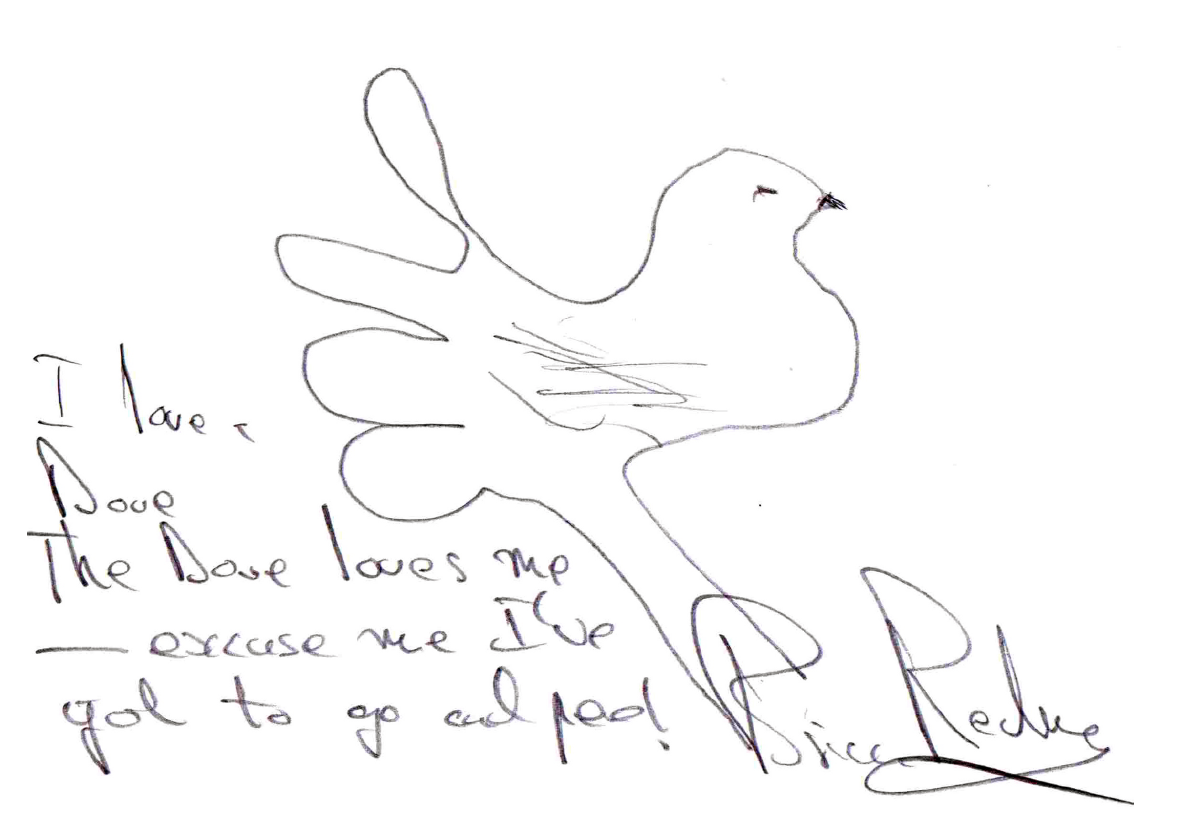 I love a
Dove
The Dove loves me
— excuse me I've
got to go and feed!